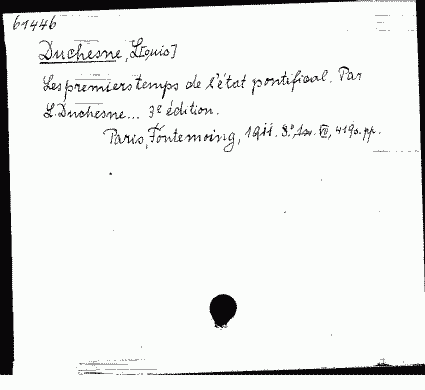 61446
Duchesne, L[ouis]
Les premiers temps de l'état pontifical. Par
L. Duchesne... 3e édition.
Paris, Fontemoing, 1911. 8.° VII, 419 pp.